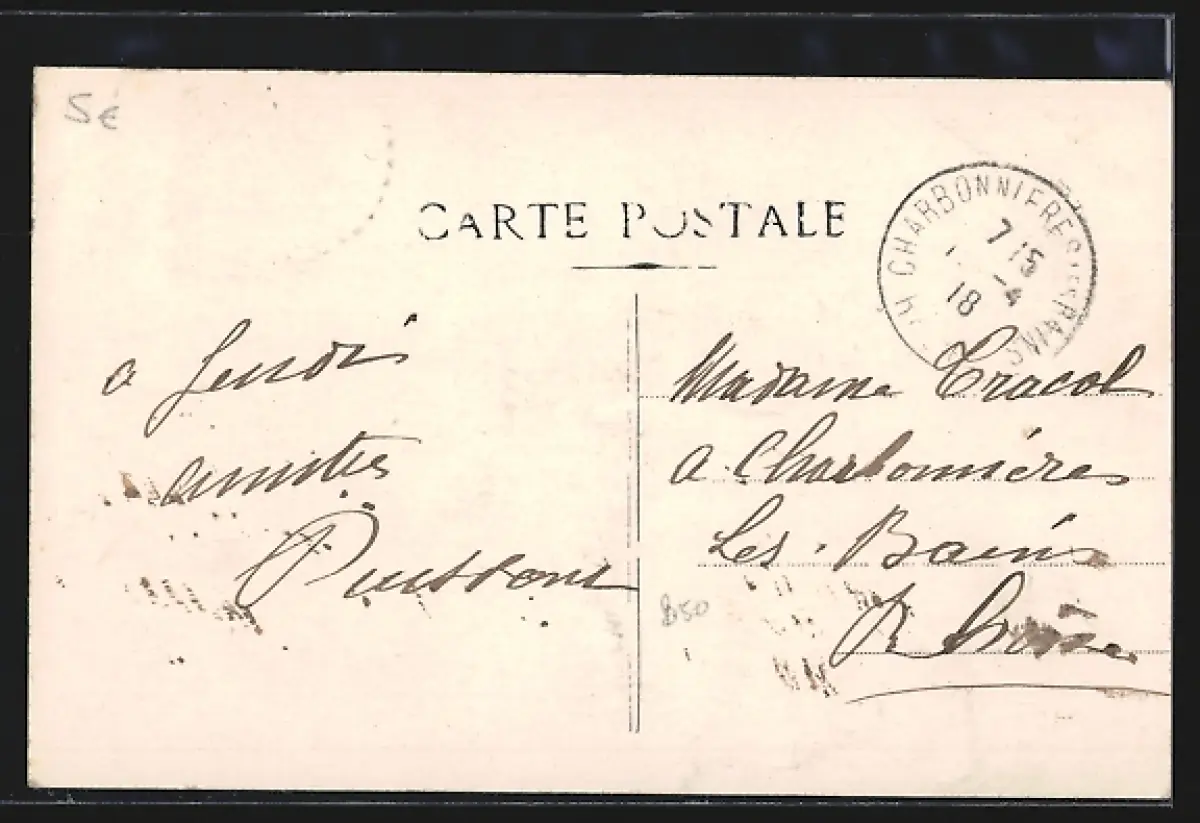 5€
CARTE POSTALE
CHARBONNIERES LES BAINS
7 15
18
a Jeudi
amitiés
Madame Tracol
a Charbonnières
Les Bains
Rhône
B50